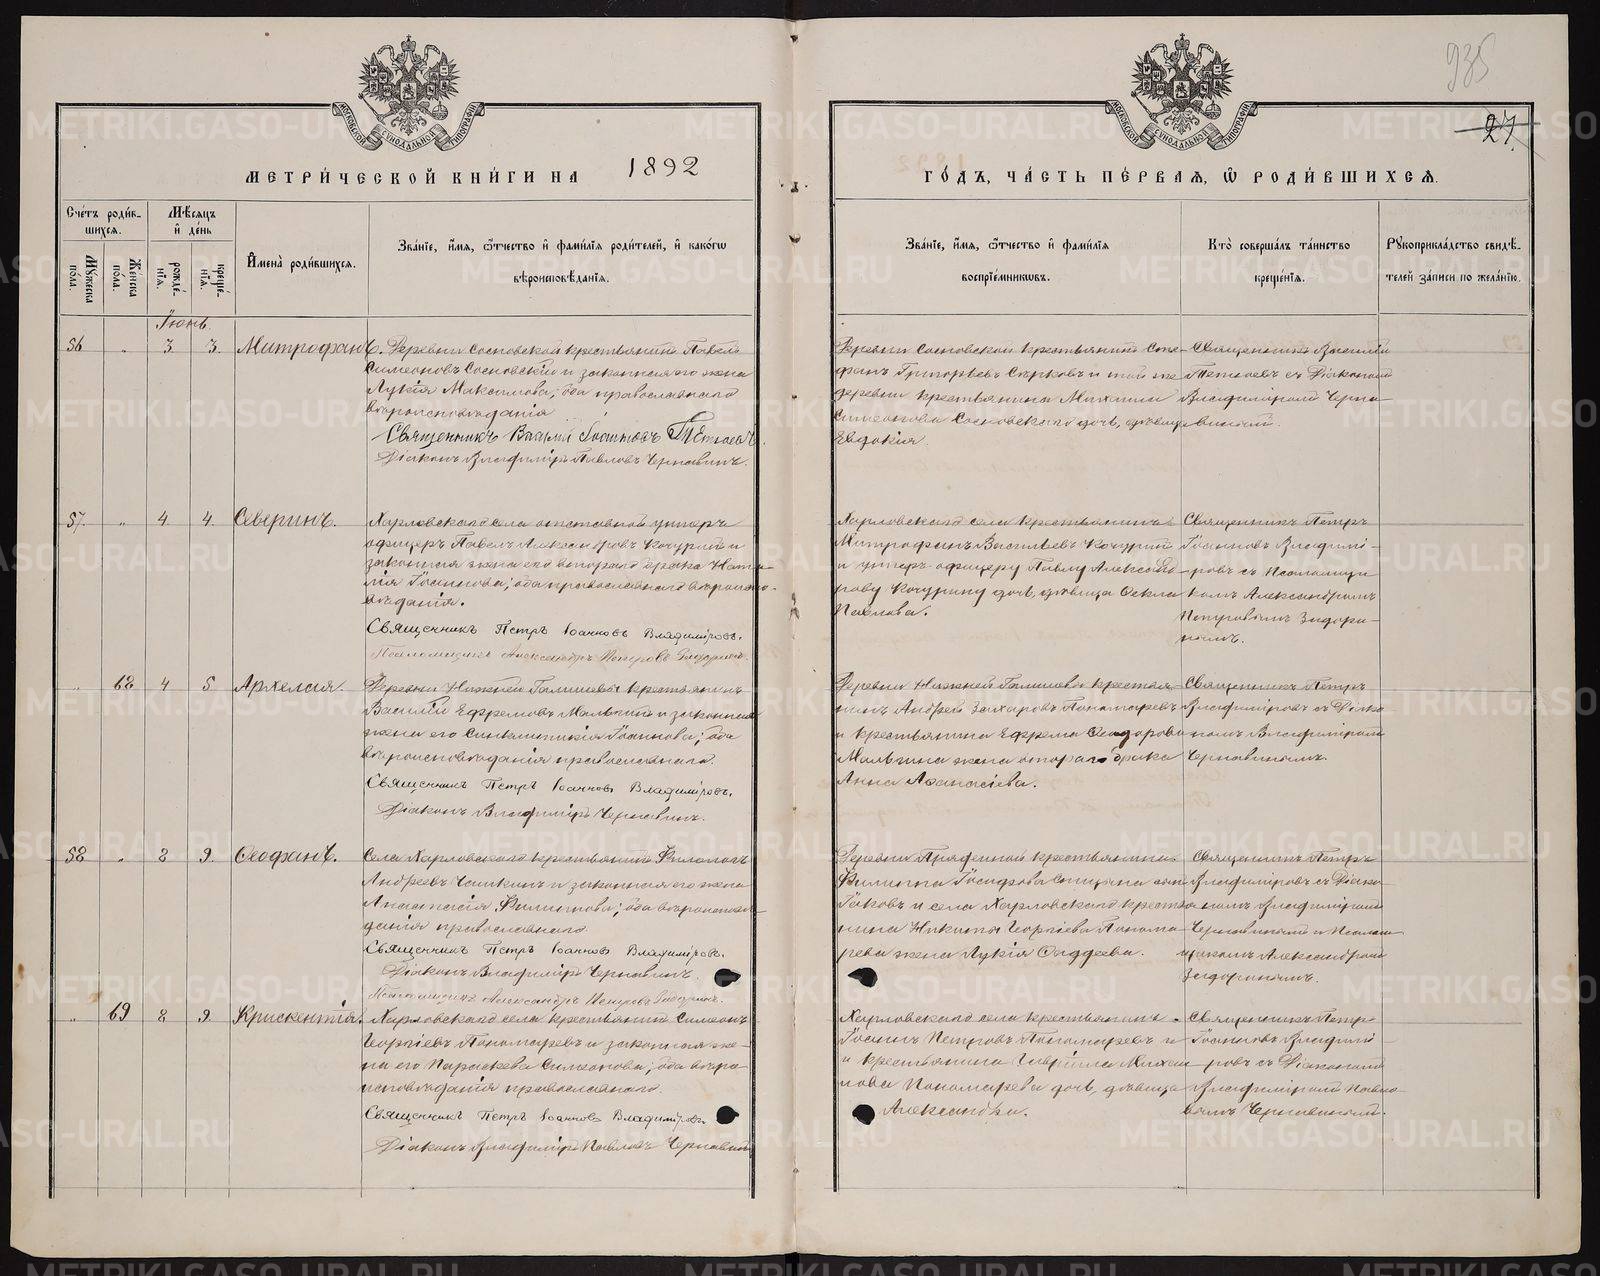 935
27.
МОСКОВСКОЙ СУНОДАЛЬНОЙ ТИПОГРАФІИ
МОСКОВСКОЙ СУНОДАЛЬНОЙ ТИПОГРАФІИ
МЕТРИ́ЧЕСКОЙ КНИ́ГИ НА 1892
ГО́ДЪ, ЧА́СТЬ ПЕ́РВАЯ, Ѡ҆ РОДИ́ВШИХСЯ.
Сче́тъ роди́вшихся.
Мꙋ́жеска по́ла.
Же́нска по́ла.
Мѣ́сяцъ и҆ де́нь
рожде́нїя.
креще́нїя.
И҆мена̀ роди́вшихся.
Зва́нїе, и҆́мя, ѻ҆́тчество и҆ фами́лїя роди́телей, и҆ како́гѡ
вѣроисповѣ́данїя.
Зва́нїе, и҆́мя, ѻ҆́тчество и҆ фами́лїя
воспрїе́мникѡвъ.
Кто̀ соверша́лъ та́инство
креще́нїя.
Рꙋкоприкла́дство свидѣ́-
телей за́писи по жела́нїю.
Іюнь.
56 " 3 3. Митрофанъ.
Деревни Сосновской крестьянинъ Павелъ
Симеоновъ Сосновскій и законная его жена
Лукія Максимова; оба православнаго
вѣроисповѣданія
Священникъ Василій Іоанновъ
Діаконъ Владиміръ Павловъ Чернавинъ.
Деревни Сосновской крестьянинъ Сте-
фанъ Григорьевъ Сѣрковъ и той же
деревни крестьянина Михаила
Симеонова Сосновскаго дочь, дѣвица
Евдокія.
Священникъ Василій
съ Діакономъ
Владиміромъ Черна-
винымъ.
57. " 4 4. Северинъ.
Харловскаго села отставной унтеръ
офицеръ Павелъ Александровъ Кочуринъ и
законная жена его втораго брака Ната-
лія Іоаннова; оба православнаго вѣроиспо-
вѣданія.
Священникъ Петръ Іоанновъ Владиміровъ.
Псаломщикъ Александръ Петровъ
Харловскаго села крестьянинъ
Митрофанъ Васильевъ Кочуринъ
и унтеръ-офицеру Павлу Александ-
рову Кочурину дочь, дѣвица Ѳекла
Павлова.
Священникъ Петръ
Іоанновъ Владимі-
ровъ съ Псаломщи-
комъ Александромъ
Петровымъ
" 68 4 5 Архелая.
Деревни Нижней Галишевой крестьянинъ
Василій Ефремовъ Малыгинъ и законная
жена его Синклитикія Іоаннова; оба
вѣроисповѣданія православнаго.
Священникъ Петръ Іоанновъ Владиміровъ.
Діаконъ Владиміръ Чернавинъ.
Деревни Нижней Галишевой крестья-
нинъ Андрей Захаровъ Пономаревъ
и крестьянина Ефрема Ѳеодорова
Малыгина жена втораго брака
Анна Аѳанасіева.
Священникъ Петръ
Владиміровъ съ Діако-
номъ Владиміромъ
Чернавинымъ.
58 " 8 9. Ѳеофанъ.
Села Харловскаго крестьянинъ Филиппъ
Андреевъ Чашкинъ и законная его жена
Анастасія Филиппова; оба вѣроисповѣ-
данія православнаго.
Священникъ Петръ Іоанновъ Владиміровъ.
Діаконъ Владиміръ Чернавинъ.
Псаломщикъ Александръ Петровъ
Деревни крестьянина
Филиппа Іосифова сынъ
Іаковъ и села Харловскаго крестья-
нина Никиты Георгіева Понома-
рева жена Лукія Ѳаддеева.
Священникъ Петръ
Владиміровъ съ Діако-
номъ Владиміромъ
Чернавинымъ и Псалом-
щикомъ Александромъ
" 69 8 9. Крискентія.
Харловскаго села крестьянинъ Симеонъ
Георгіевъ Пономаревъ и законная же-
на его Параскева Симеонова; оба вѣро-
исповѣданія православнаго.
Священникъ Петръ Іоанновъ Владиміровъ.
Діаконъ Владиміръ Павловъ Чернавинъ
Харловскаго села крестьянинъ
Іоаннъ Петровъ Пономаревъ и
и крестьянина Гавріила Михаи-
лова Пономарева дочь, дѣвица
Александра.
Священникъ Петръ
Іоанновъ Владимі-
ровъ съ Діакономъ
Владиміромъ Павло-
вымъ Чернавинымъ.
METRIKI.GASO-URAL.RU